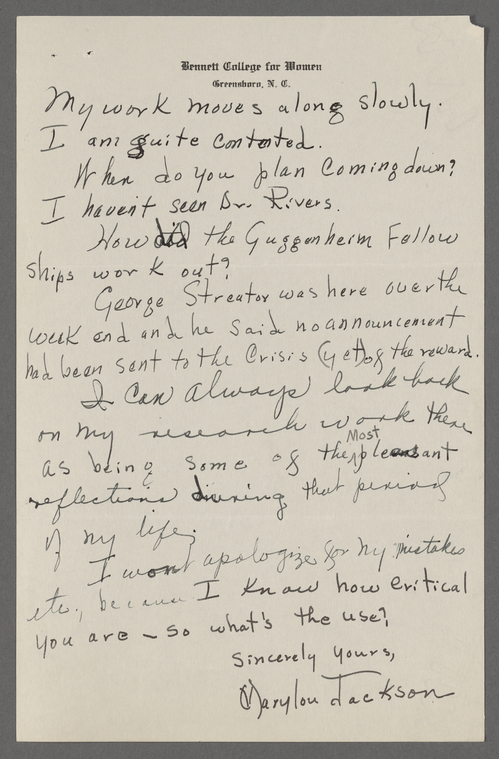 Bennett College for Women
Greensboro, N. C.
My work moves along slowly.
I am quite contented.
When do you plan coming down?
I havent seen Dr. Rivers.
How did the Guggenheim Fellow
ships work out?
George Streator was here over the
week end and he said no announcement
had been sent to the Crisis (yet) of the reward.
I can always look back
on my research work there
as being some of the Most pleasant
reflections during that period
of my life.
I wont apologize for my mistakes
etc., because I know how critical
you are – so what's the use?
Sincerely yours,
Marylou Jackson